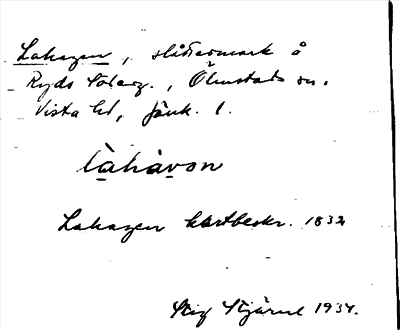 Lahagen, slåttermark å
Ryds Söderg., Ölmstads sn.
Vista hd, Jönk. l.
làhàvon
Lahagen kartbeskr. 1832
Stig Stjärne 1934.